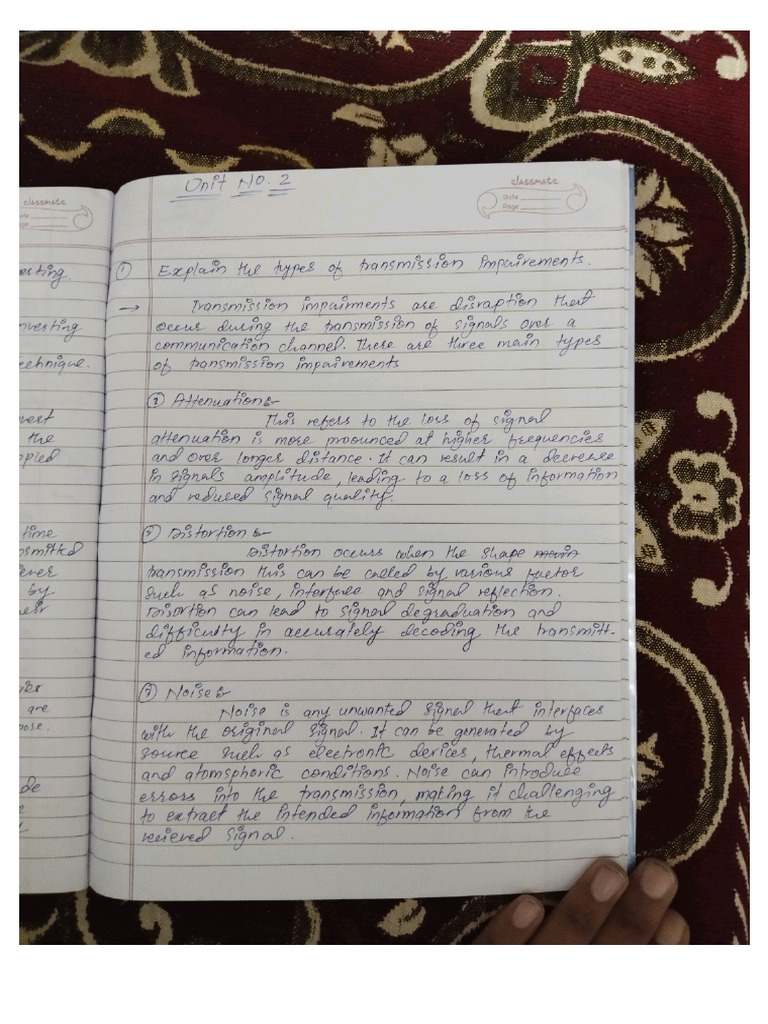 esting.
nvesting
echnique.
vert
the
mpled
time
nsmitted
ever
by
eir
are
pose.
de
classmate
Unit No. 2
classmate
Date
Page
① Explain the types of transmission impairements.
→ Transmission impairments are disraption that
occur during the transmission of signals over a
communication channel. There are three main types
of transmission impairements
① Attenuation:-
This refers to the loss of signal
attenuation is more proounced at higher frequencies
and over longer distance. It can result in a decrease
in signals amplitude, leading to a loss of information
and reduced signal quality.
② Distortion:-
Distortion occurs when the shape main
transmission this can be called by various factor
such as noise, interface and signal reflection.
Disortion can lead to signal degraduation and
difficulty in accurately decoding the transmitt-
ed information.
③ Noise:-
Noise is any unwanted signal that interfaces
with the original signal. It can be generated by
source such as electronic devices, thermal effects
and atomsphoric conditions. Noise can introduce
errors into the transmission, making it challenging
to extract the intended information from the
recieved signal.